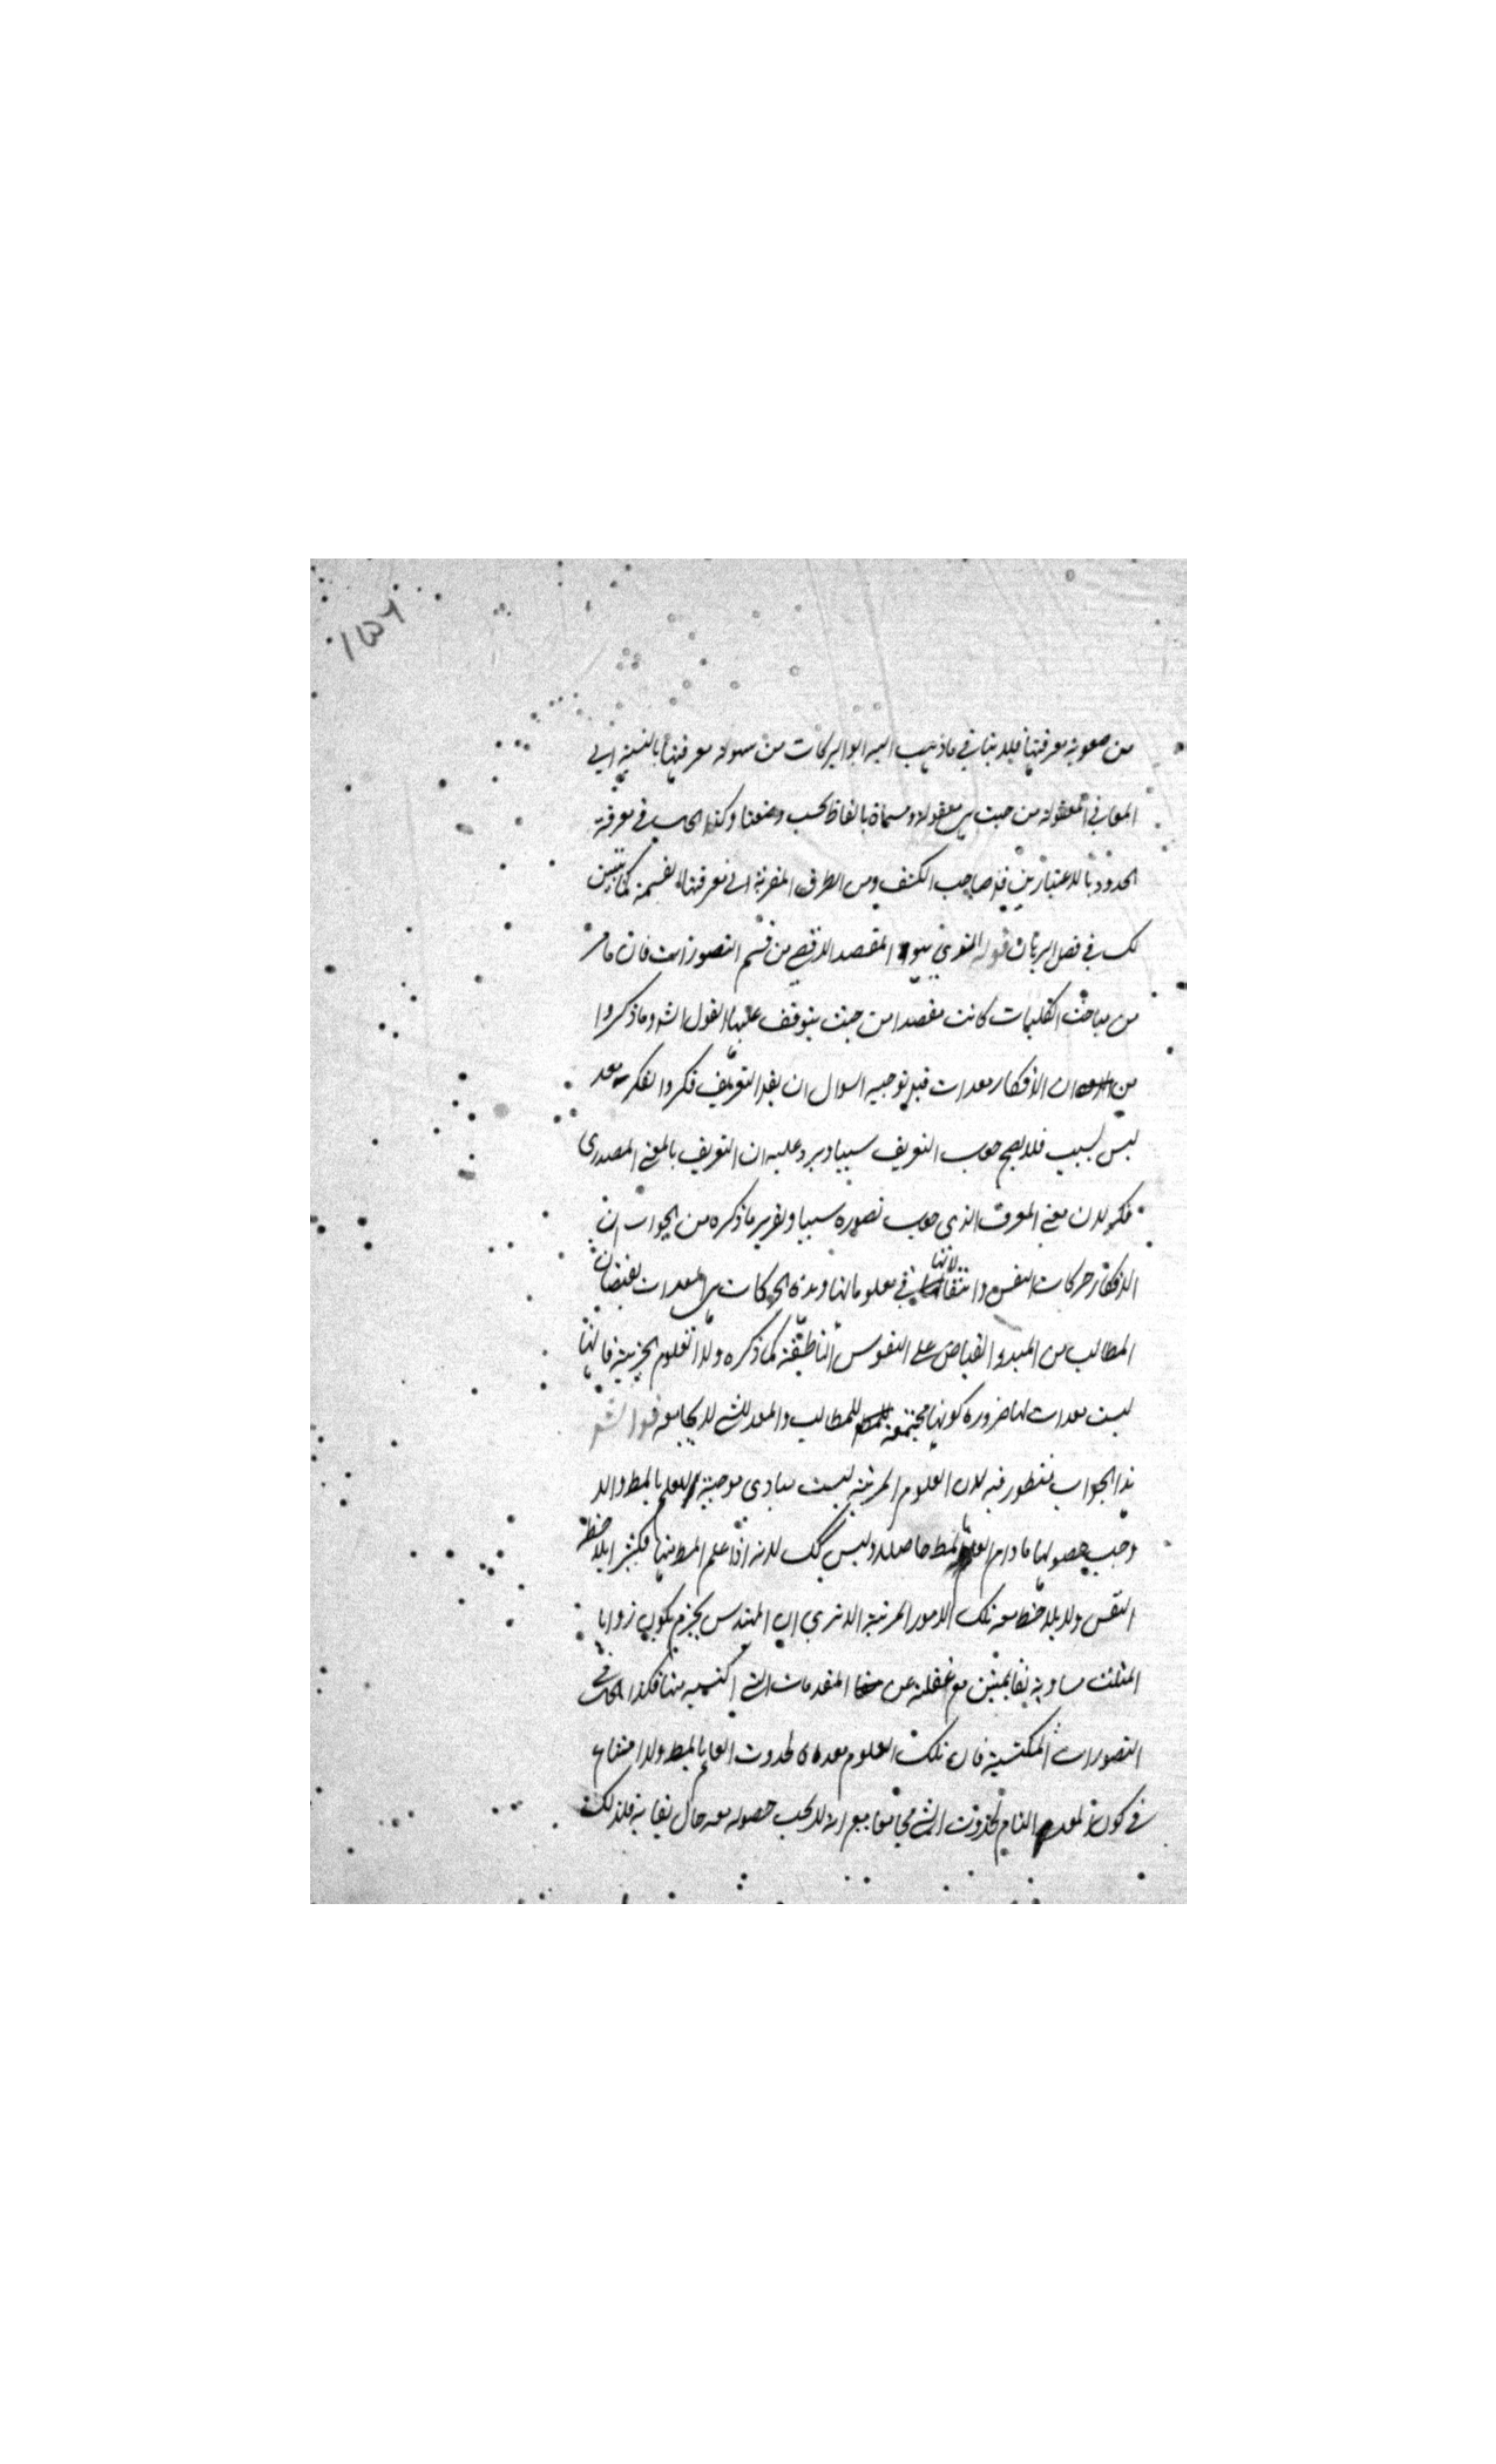 ١٥٦
من صعوبة معرفتها فلا ينافي ما ذهب اليه ابو البركات من سهولة معرفتها بالنسبة الى
المعاني المعقولة من حيث هي معقولة ومسماة بالفاظ بحسب وضعنا وكذا الحال في معرفة
الحدود بالاعتبارين صاحب الكشف ومن الطرق المقربة الى معرفتها القسمة كما يتبين
لك في فصل البرهان قوله التعريف هو المقصد الاقصى من قسم التصورات فان ما مر
من مباحث الكليات كانت مقصدا من حيث يتوقف عليها القول الش وما ذكروا
من ان الافكار معدات قيد توجيه السوال ان يقـ التعريف فكر والفكر معد
ليس بسبب فلا يصح جعل التعريف سببا ويرد عليه ان التعريف بالمعنى المصدري
فكر لا بمعنى المعرف الذي جعل تصوره سببا وتقرير ما ذكره من الجواب ان
الافكار حركات النفس وانتقالاتها في معلوماتها وهذه الحركات هي المعدات لفيضان
المطالب من المبدء الفياض على النفوس الناطقة كما ذكره ولا العلوم الجزئية فانها
ليست معدات لها ضرورة كونها مجتمعة للمطالب والمعد للشي لا يجامعه
هذا الجواب منظور فيه لان العلوم المرتبة ليست مبادى موجبة للعلم بالمط والا
وجب حصولها ما دام العلم بالمط حاصلا وليس كك لانه اذا علم المط منها فكثيرا يلاحظه
النفس ولا يلاحظ معه تلك الامور المرتبة الا ترى ان المهندس يجزم بكون زوايا
المثلث مساوية لقايمتين مع غفلته عن المقدمات التي اكتسبه منها فكذا الحال في
التصورات المكتسبة فان تلك العلوم معدة لحدوث العلم بالمط ولا امتناع
في كون المعد التام لحدوث الشي مجامعا مع انه لا يجب حصوله معه حال بقائه فلذلك